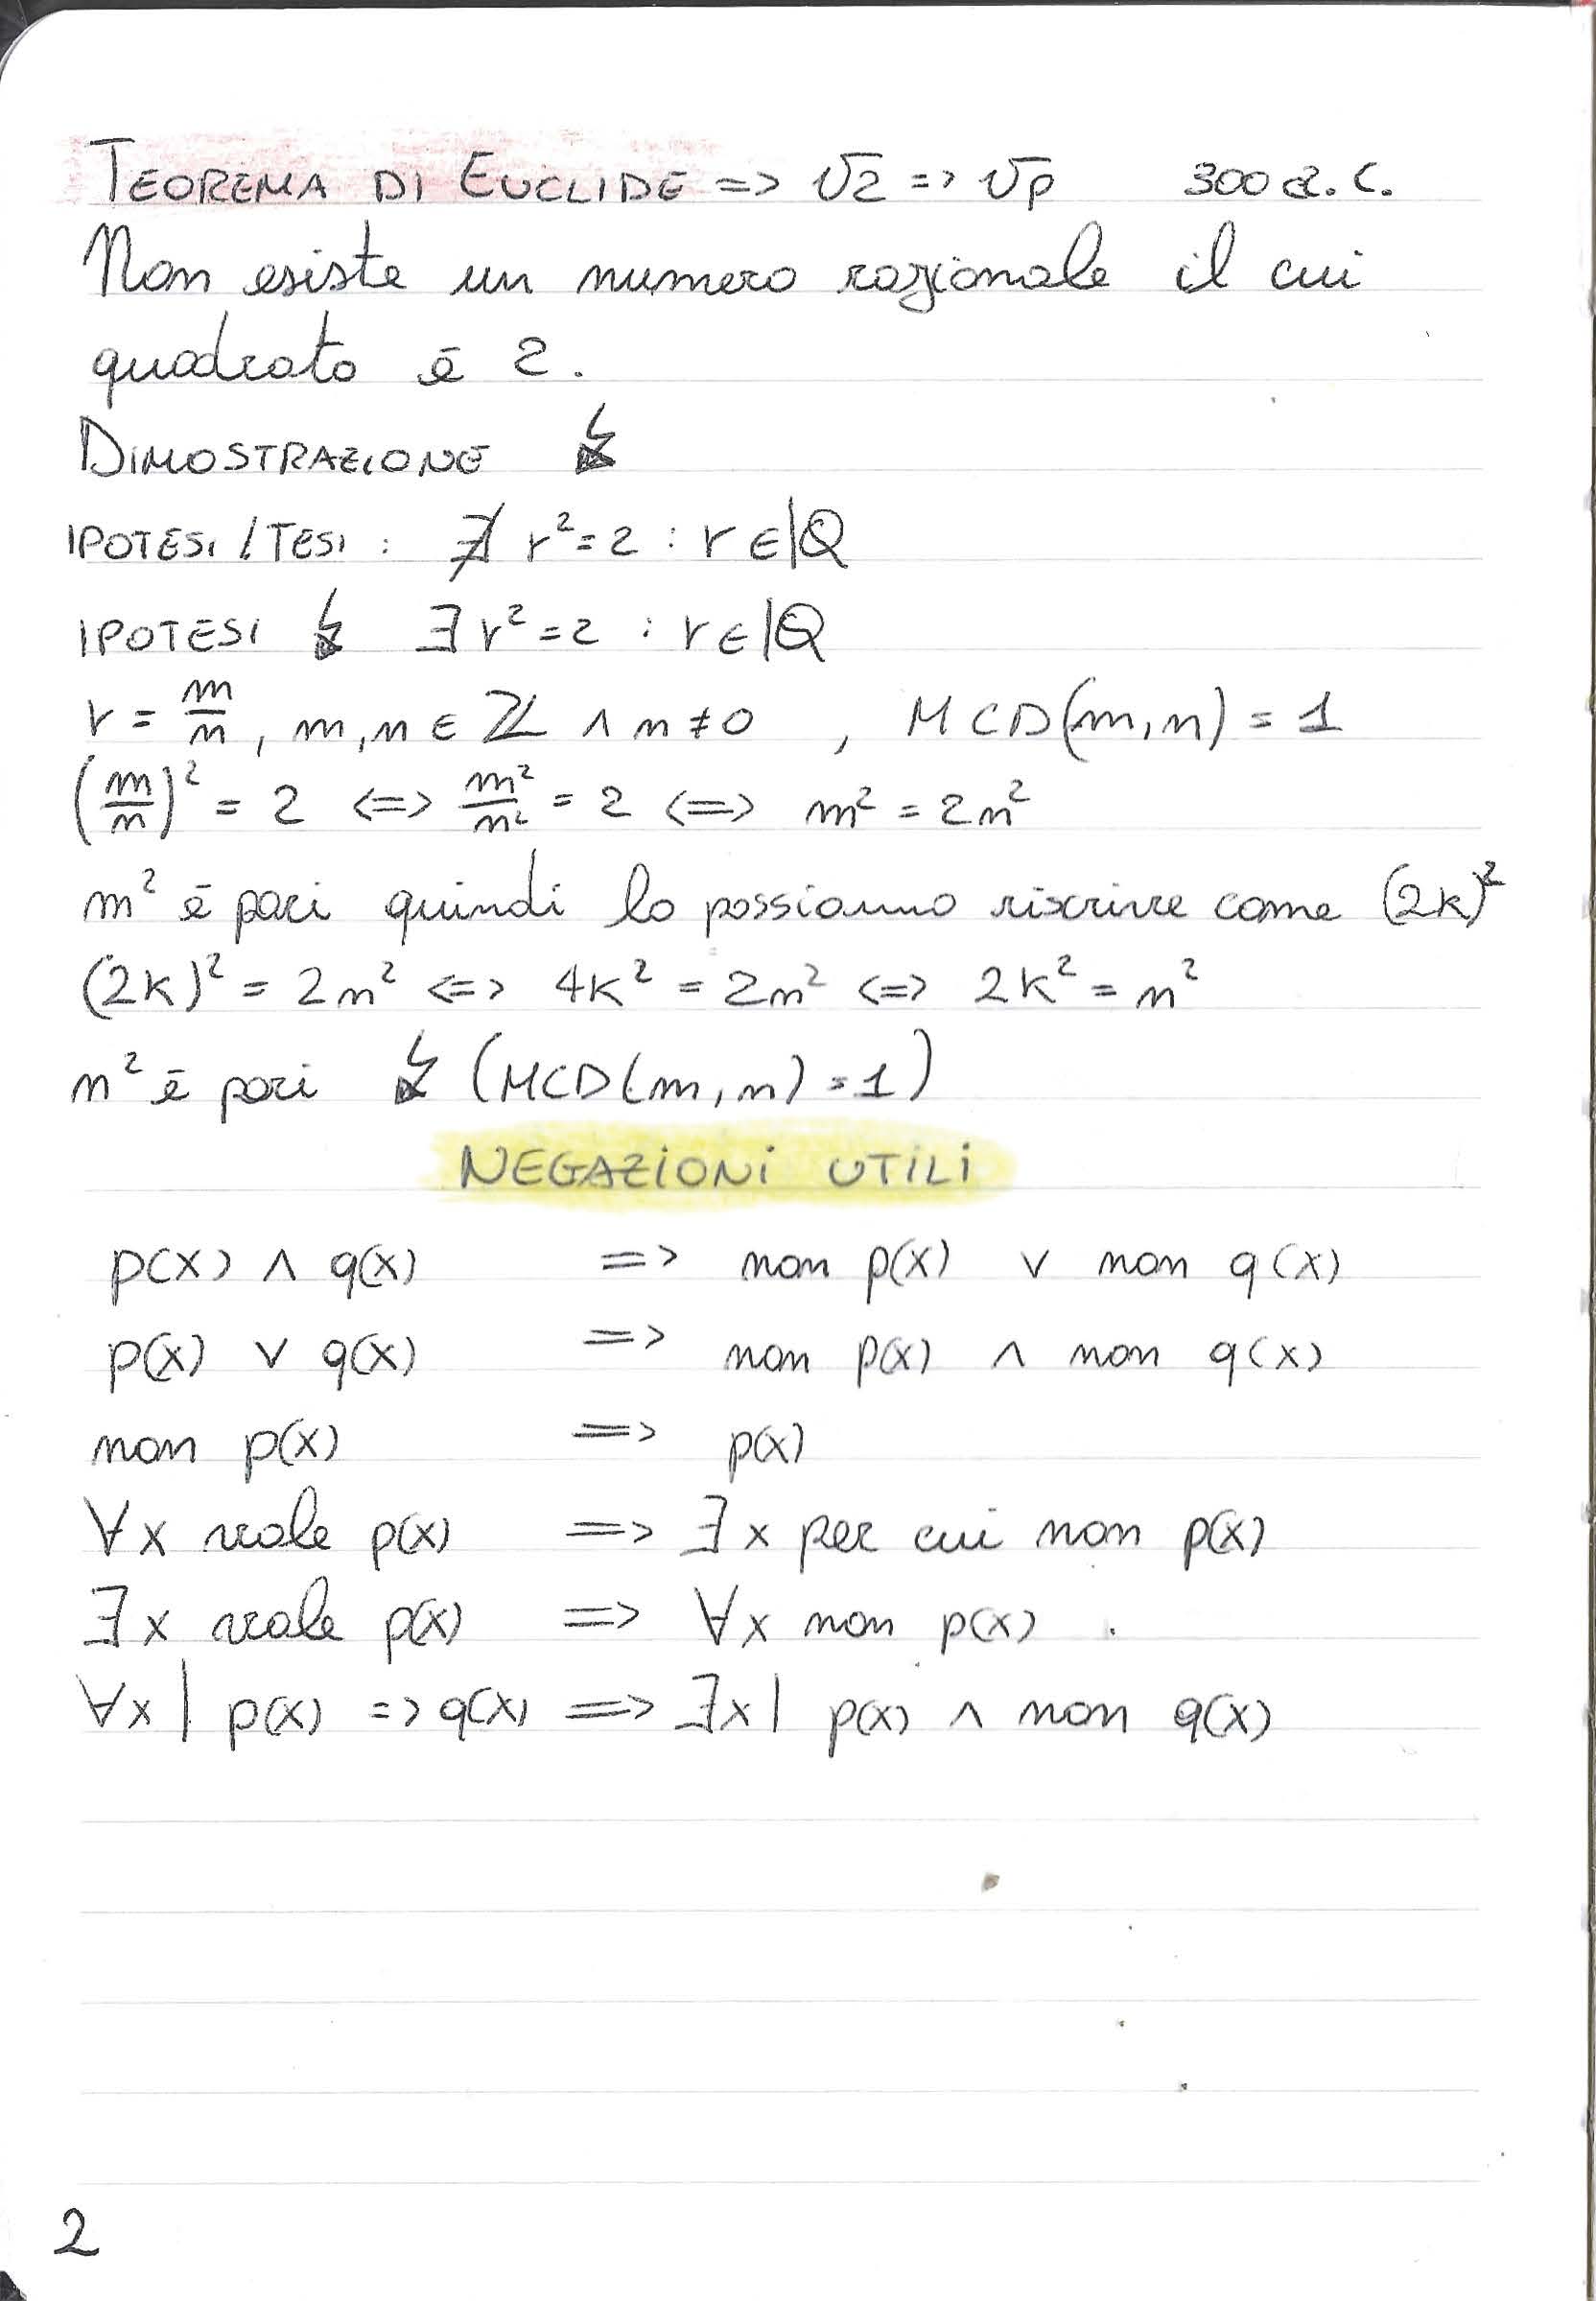 TEOREMA DI EUCLIDE => √2 => √p 300 a.C.
Non esiste un numero razionale il cui
quadrato è 2.
DIMOSTRAZIONE ↯
IPOTESI / TESI : ∄ r² = 2 : r ∈ ℚ
IPOTESI ↯ ∃ r² = 2 : r ∈ ℚ
r = m/n , m, n ∈ ℤ ∧ n ≠ 0 , MCD(m, n) = 1
(m/n)² = 2 <=> m²/n² = 2 <=> m² = 2n²
m² è pari quindi lo possiamo riscrivere come (2k)²
(2k)² = 2n² <=> 4k² = 2n² <=> 2k² = n²
n² è pari ↯ (MCD(m, n) = 1)
NEGAZIONI UTILI
p(x) ∧ q(x) => non p(x) ∨ non q(x)
p(x) ∨ q(x) => non p(x) ∧ non q(x)
non p(x) => p(x)
∀x vale p(x) => ∃x per cui non p(x)
∃x vale p(x) => ∀x non p(x)
∀x | p(x) => q(x) => ∃x | p(x) ∧ non q(x)
2